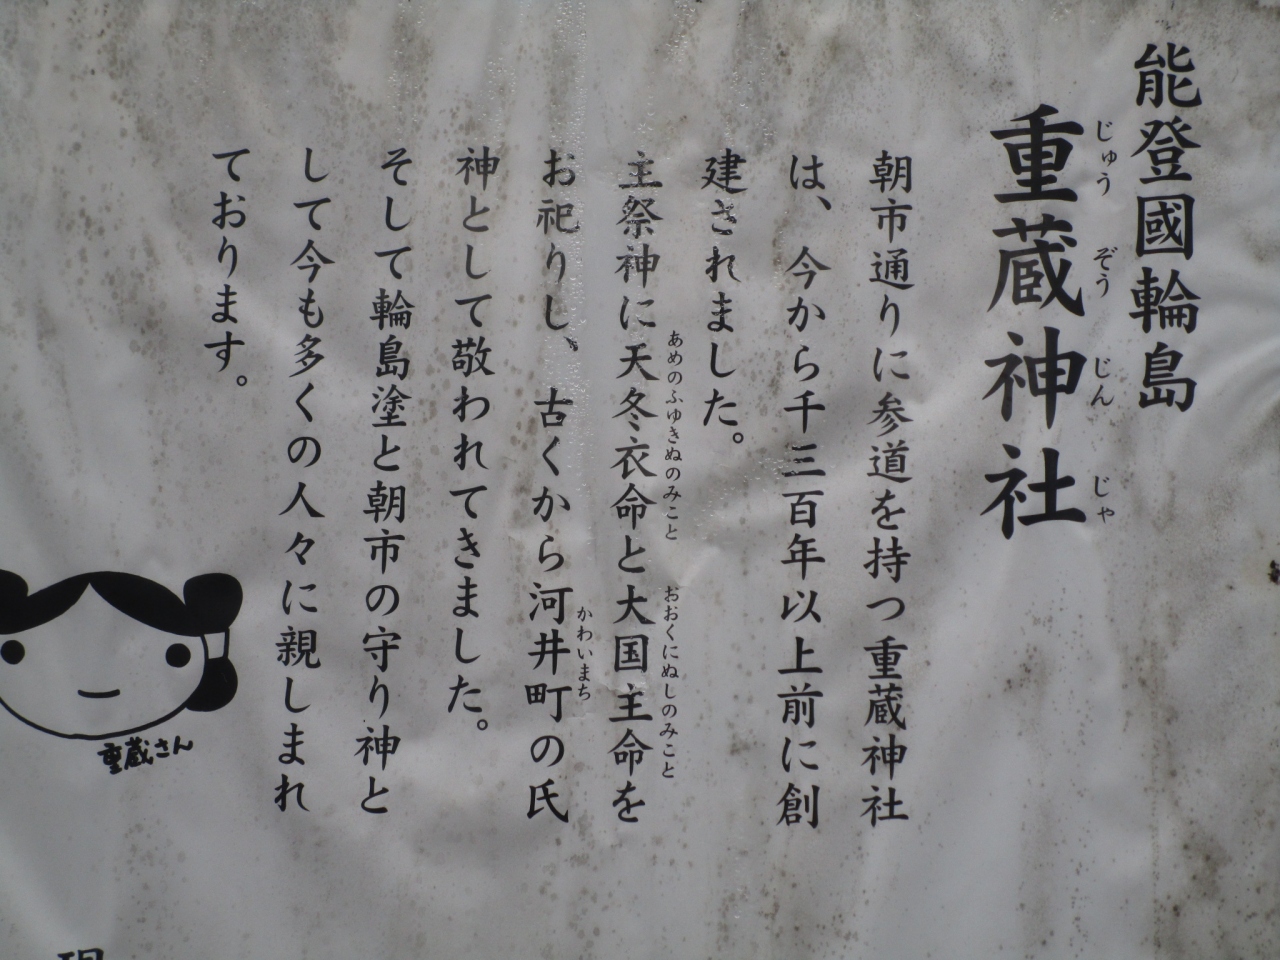 能登國輪島
重蔵神社
じゅうぞうじんじゃ
朝市通りに参道を持つ重蔵神社
は、今から千三百年以上前に創
建されました。
主祭神に天冬衣命と大国主命を
あめのふゆきぬのみこと
おおくにぬしのみこと
お祀りし、古くから河井町の氏
かわいまち
神として敬われてきました。
そして輪島塗と朝市の守り神と
して今も多くの人々に親しまれ
ております。
重蔵さん